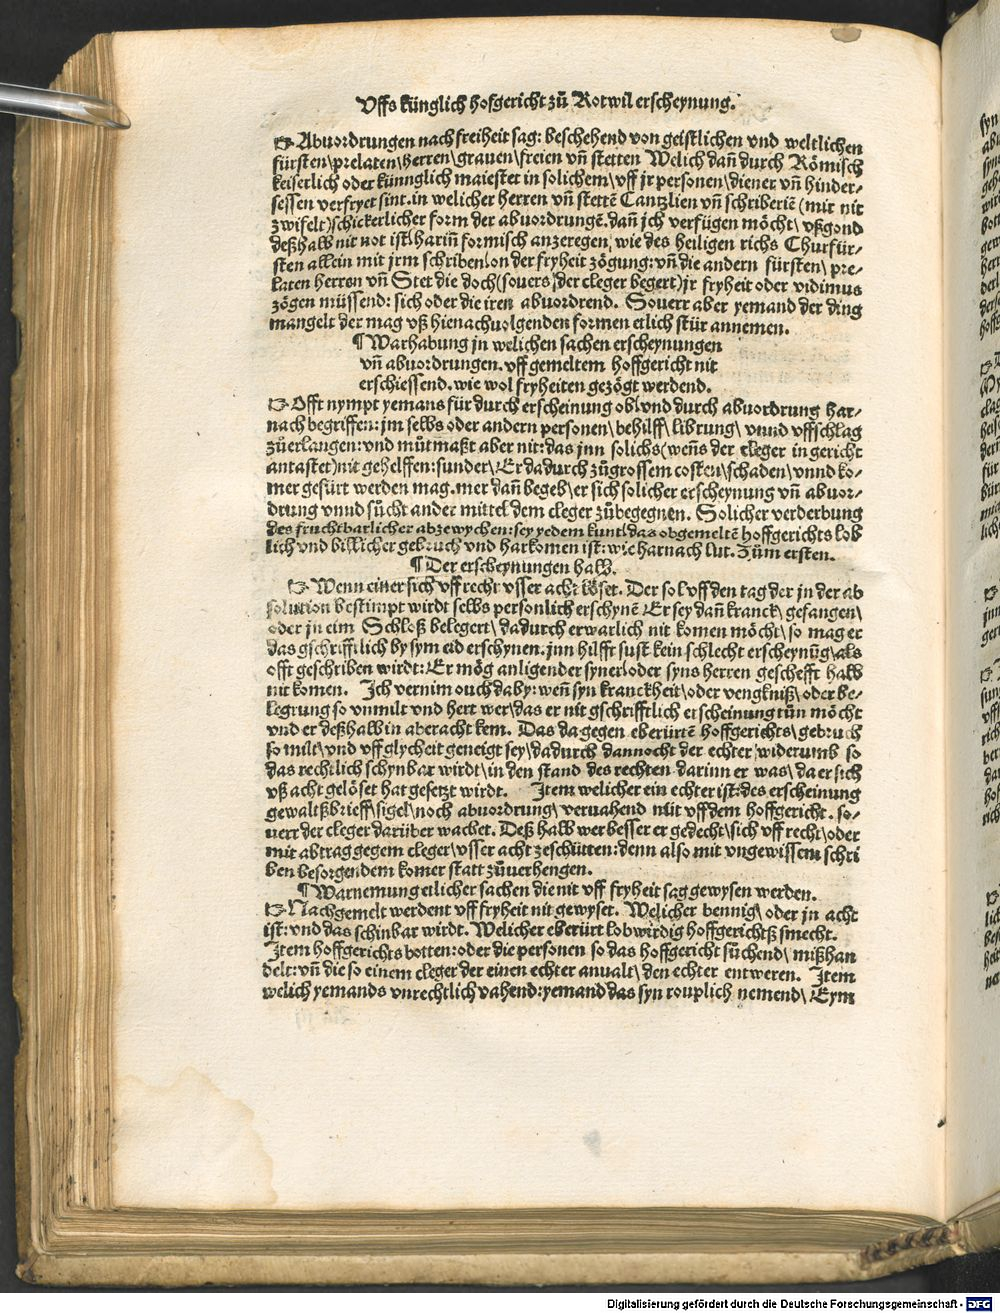 Uffs künglich hofgericht zů Rotwil erscheynung.
☞ Abuordrungen nach freiheit sag: beschehend von geistlichen vnd weltlichen
fürsten\prelaten\herren\grauen\freien vñ stetten Welich dañ durch Römisch
keiserlich oder künnglich maiestet in solichem\vff jr personen\diener vñ hinder⸗
sessen verfryet sint. in welicher herren vñ stettē Cantzlien vñ schriberiē (mit nit
zwifelt)schickerlicher form der abuordrungē. dañ jch verfügen möcht\vßgond
deßhalb nit not ist\hariñ formisch anzeregen, wie des heiligen richs Churfür⸗
sten allein mit jrm schriben\on der fryheit zögung: vñ die andern fürsten\pre⸗
laten herren vñ Stet die doch(souers der cleger begert)jr fryheit oder vidimus
zögen müssend: sich oder die iren abuordrend. Souerr aber yemand der ding
mangelt der mag vß hienachuolgenden formen etlich stür annemen.
¶ Warhabung jn welichen sachen erscheynungen
vñ abuordrungen. vff gemeltem hoffgericht nit
erschiessend. wie wol fryheiten gezögt werdend.
☞ Offt nympt yemans für durch erscheinung ob\vnd durch abuordrung har⸗
nach begriffen: jm selbs oder andern personen\behilff\librung\vnnd vffschlag
zůerlangen: vnd můtmaßt aber nit: das jnn solichs(weñs der cleger in gericht
antastet)nit gehelffen: sunder\Er dadurch zůgrossem costen\schaden\vnnd ko⸗
mer gefürt werden mag. mer dañ begeb\er sich solicher erscheynung vñ abuor⸗
drung vnnd sůcht ander mittel dem cleger zůbegegnen. Solicher verderbung
des fruchtbarlicher abzewychen: sey yedem kunt\das obgemeltē hoffgerichts lob
lich vnd billicher gebruch vnd harkomen ist: wie harnach lut. Zům ersten.
¶ Der erscheynungen halb.
☞ Wenn einer sich vff recht vsser acht löset. Der sol vff den tag der jn der ab
solution bestimpt wirdt selbs personlich erschynē Er sey dañ kranck\gefangen\
oder jn eim Schloß belegert\dadurch er warlich nit komen möcht\so mag er
das gschrifftlich by sym eid erschynen. jnn hilfft sust kein schlecht erscheynūg\als
offt geschriben wirdt: Er mög anligender syner\oder syns herren geschefft halb
nit komen. Jch vernim ouch daby: weñ syn kranckheit\oder vengkniß\oder be⸗
legrung so vnmilt vnd hert wer\das er nit gschrifftlich erscheinung tůn möcht
vnd er deßhalb in aberacht kem. Das da gegen eberürtē hoffgerichts\gebruch
so milt\vnd vff glycheit geneigt sey\dadurch dannocht der echter widerumb so
das rechtlich schynbar wirdt\in den stand des rechten darinn er was\da er sich
vß acht gelöset hat gesetzt wirdt. Jtem welicher ein echter ist: des erscheinung
gewaltßbrieff\sigel\noch abuordrung\veruahend nüt vff dem hoffgericht. so⸗
uerr der cleger darüber wachet. Deß halb wer besser er gedecht\sich vff recht\oder
mit abtrag gegem cleger\vsser acht zeschütten: denn also mit vngewissem schri
ben besorgendem komer statt zůuerhengen.
¶ Warnemung etlicher sachen die nit vff fryheit sag gewysen werden.
☞ Nachgemelt werdent vff fryheit nit gewyset. Welicher bennig\oder jn acht
ist: vnd das schinbar wirdt. Welicher eberürt lobwirdig hoffgerichtß smecht.
Jtem hoffgerichts botten: oder die personen so das hoffgericht sůchend\mißhan
delt: vñ die so einem cleger der einen echter anualt\den echter entweren. Jtem
welich yemands vnrechtlich vahend: yemand das syn rouplich nemend\Eym
Digitalisierung gefördert durch die Deutsche Forschungsgemeinschaft - DFG